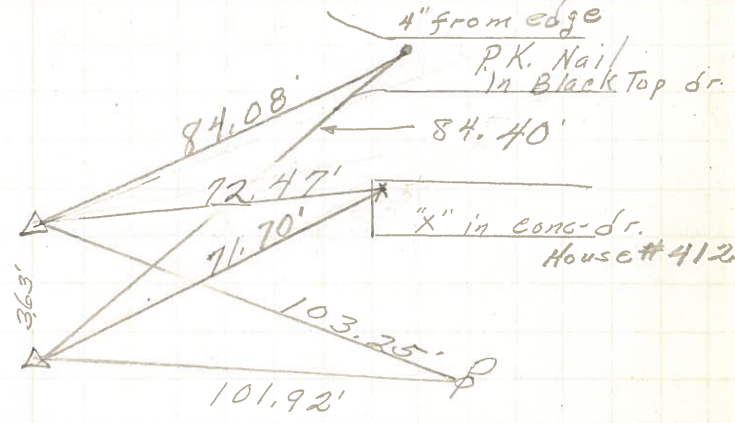 4" from edge
P.K. Nail
In Black Top dr.
84.08'
84.40'
72.47'
"X" in conc-dr.
71.70'
House # 412
3.63'
103.25'
101.92'